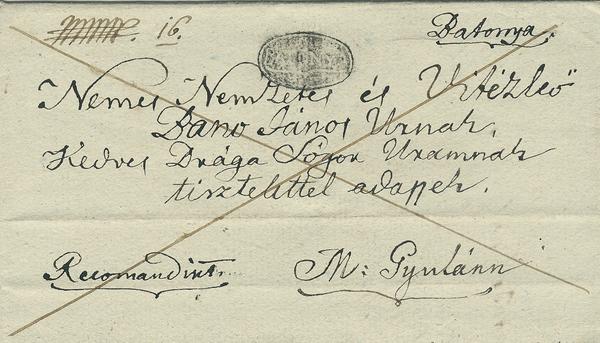 16.
Batonya.
Nemes Nemzetes és Vitézlő
Bano János Urnak,
Kedves Drága Sógor Uramnak
tisztelettel adassék.
Recomandirt
M: Gyulánn